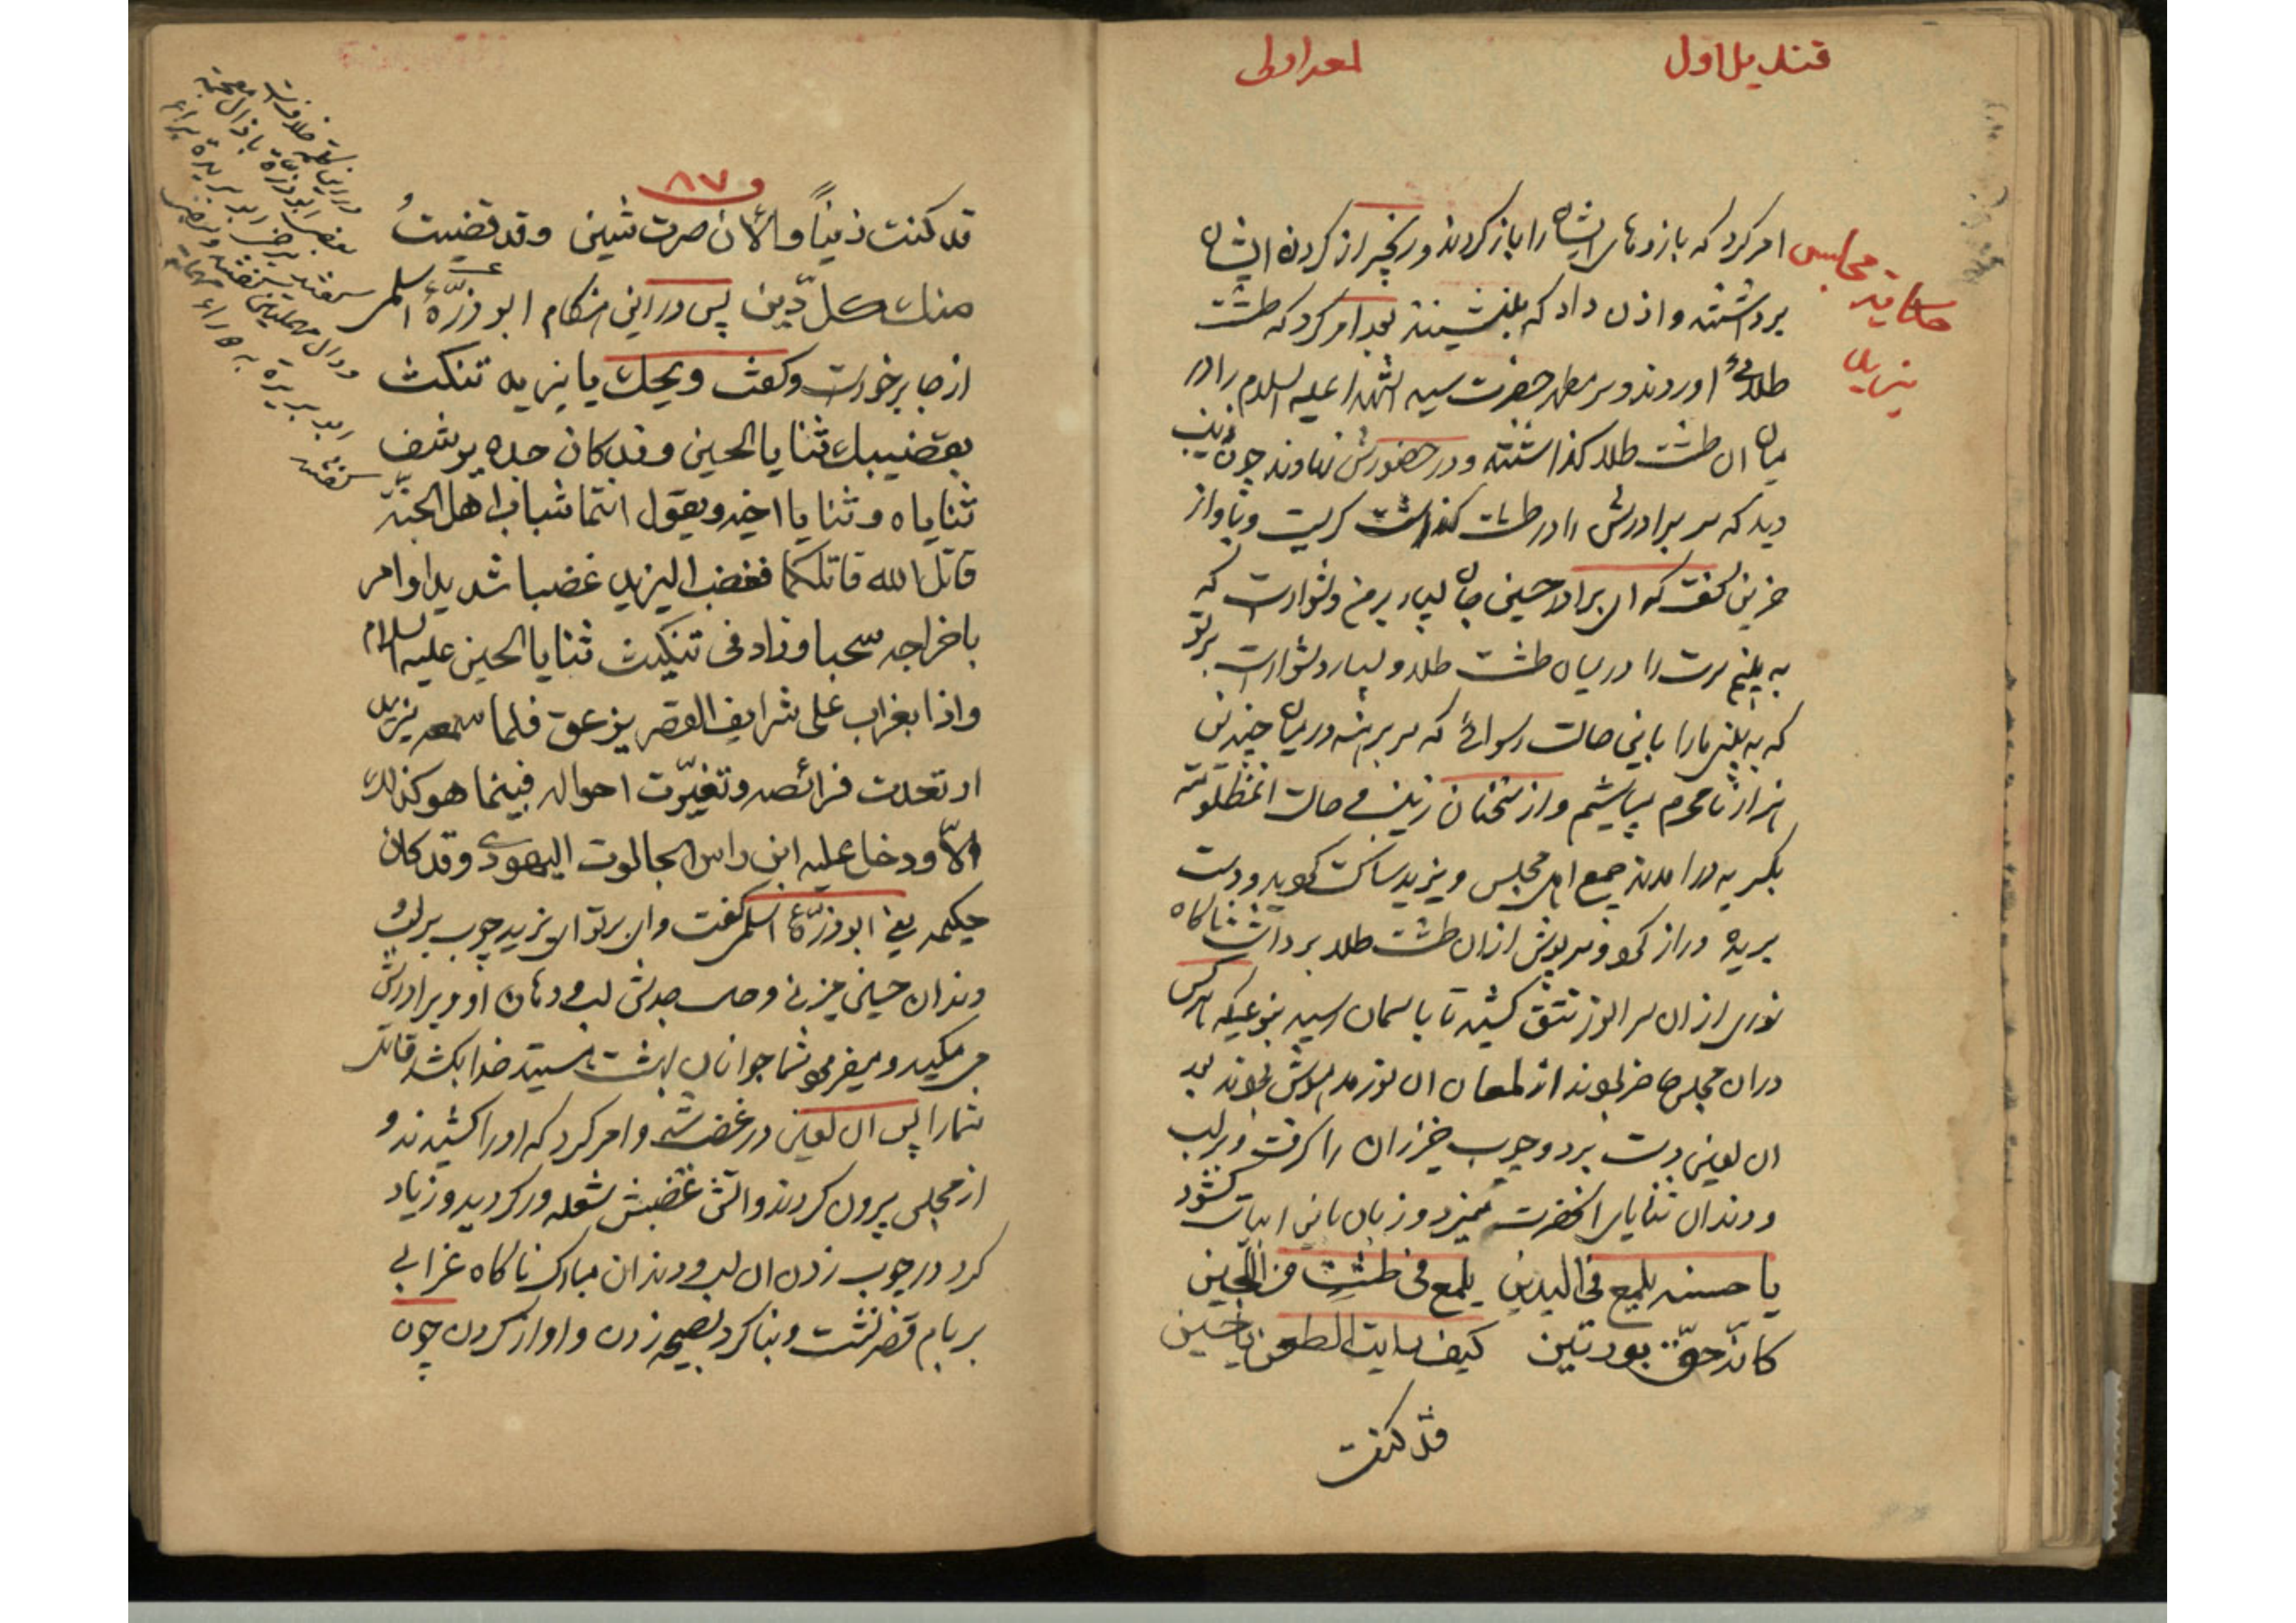 قندیل اول
امر کرد که بازوهای ایشان را باز کردند و زنجیر از کردن ایشان
حکایة مجلس
یزید
برداشتند و اذن داد که بنشینند بعد امر کرد که طشت
طلائی اوردند و سر مطهر حضرت سید الشهدا علیه السلام را در
میان ان طشت طلا کذاشتند و در حضورش نهادند چون زینب
دید که سر برادرش را در طشت کذاشت کریست و باواز
حزین کفت که ای برادر حسین جان بسیار بر من دشوارست که
به بینم سرت را در میان طشت طلا و بسیار دشوارست بر تو
که به بینی ما را باین حالت رسوائی که سر برهنه در میان چندین
هزار نامحرم بباشیم و از سخنان زینب و حالت انمظلومه
بکریه در امدند جمیع اهل مجلس و یزید ساکت کردید و دست
بریده دراز کرد و سرپوش از ان طشت طلا برداشت ناکاه
نوری از ان سر انور تتق کشید تا باسمان رسید بنوعیکه هرکس
دران مجلس حاضر بودند از لمعان ان نور مدهوش بودند بعد
ان لعین دست برد و چوب خیزران را کرفت و بر لب
و دندان ثنایای انحضرت میزد و زبان باین ابیات کشود
یا حسنه یلمع فی الیدین یلمع فی طشت من اللجین
کانه حف بوردتین کیف رایت الطعن یا حسین
قد کنت
۸۷
قد کنت زیناً والآن صرت شین وقد قضیتُ
منك كل دین پس در این هنکام ابو زرّهٔ اسلمی
از جا برخواست و کفت ویحك یا یزید تنکث
بقضیبك ثنایا الحسین وقد کان جده یرشف
ثنایاه وثنایا اخیه ویقول انتما شباب اهل الجنّة
قاتل الله قاتلکما فغضب الیزید غضبا شدیدا وامر
باخراجه سحبا وزاد فی تنکیث ثنایا الحسین علیه السلام
واذا بغراب علی شرایف القصر یزعق فلما سمعه یزید
ارتعدت فرائصه وتغیّرت احواله فبینما هو کذلك
الّا ودخل علیه ابن راس الجالوت الیهودی وقد کان
حکیمه یعنی ابو زرّهٔ اسلمی کفت وای بر تو ای یزید چوب بر لب و
دندان حسین میزنی و حال جدش لب و دهان او و برادرش
می مکید و میفرمود شما جوانان بهشت هستید خدا بکشد قاتل
شما را پس ان لعین در غضب شد و امر کرد که او را کشیدند و
از مجلس بیرون کردند و اتش غضبش شعله ور کردید و زیاد
کرد در چوب زدن ان لب و دندان مبارک ناکاه غرابی
بر بام قصر نشست و بنا کرد بصیحه زدن و اواز کردن چون